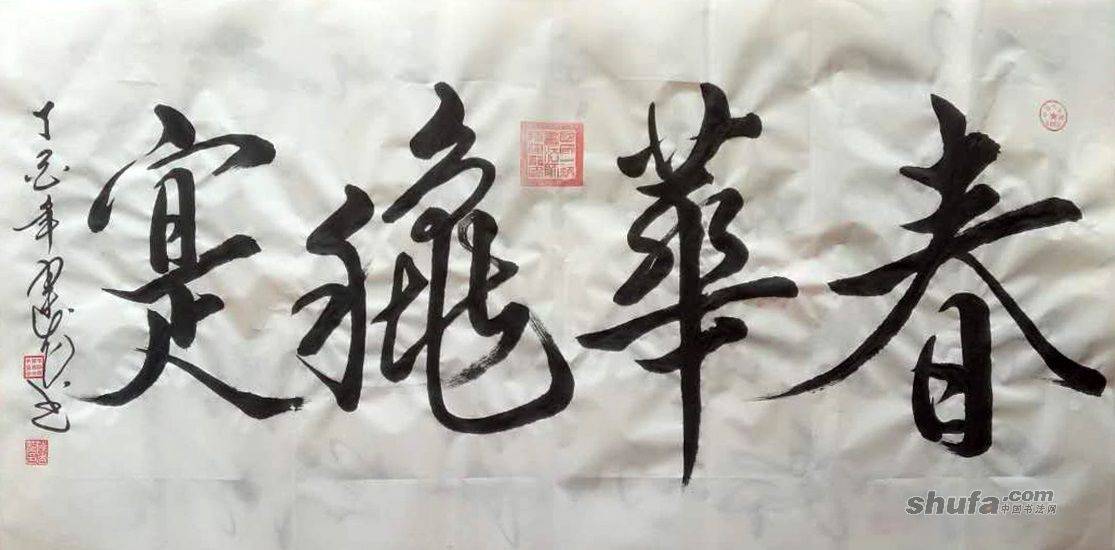 春華穐寔
丁酉年 书
shufa.com
中国书法网